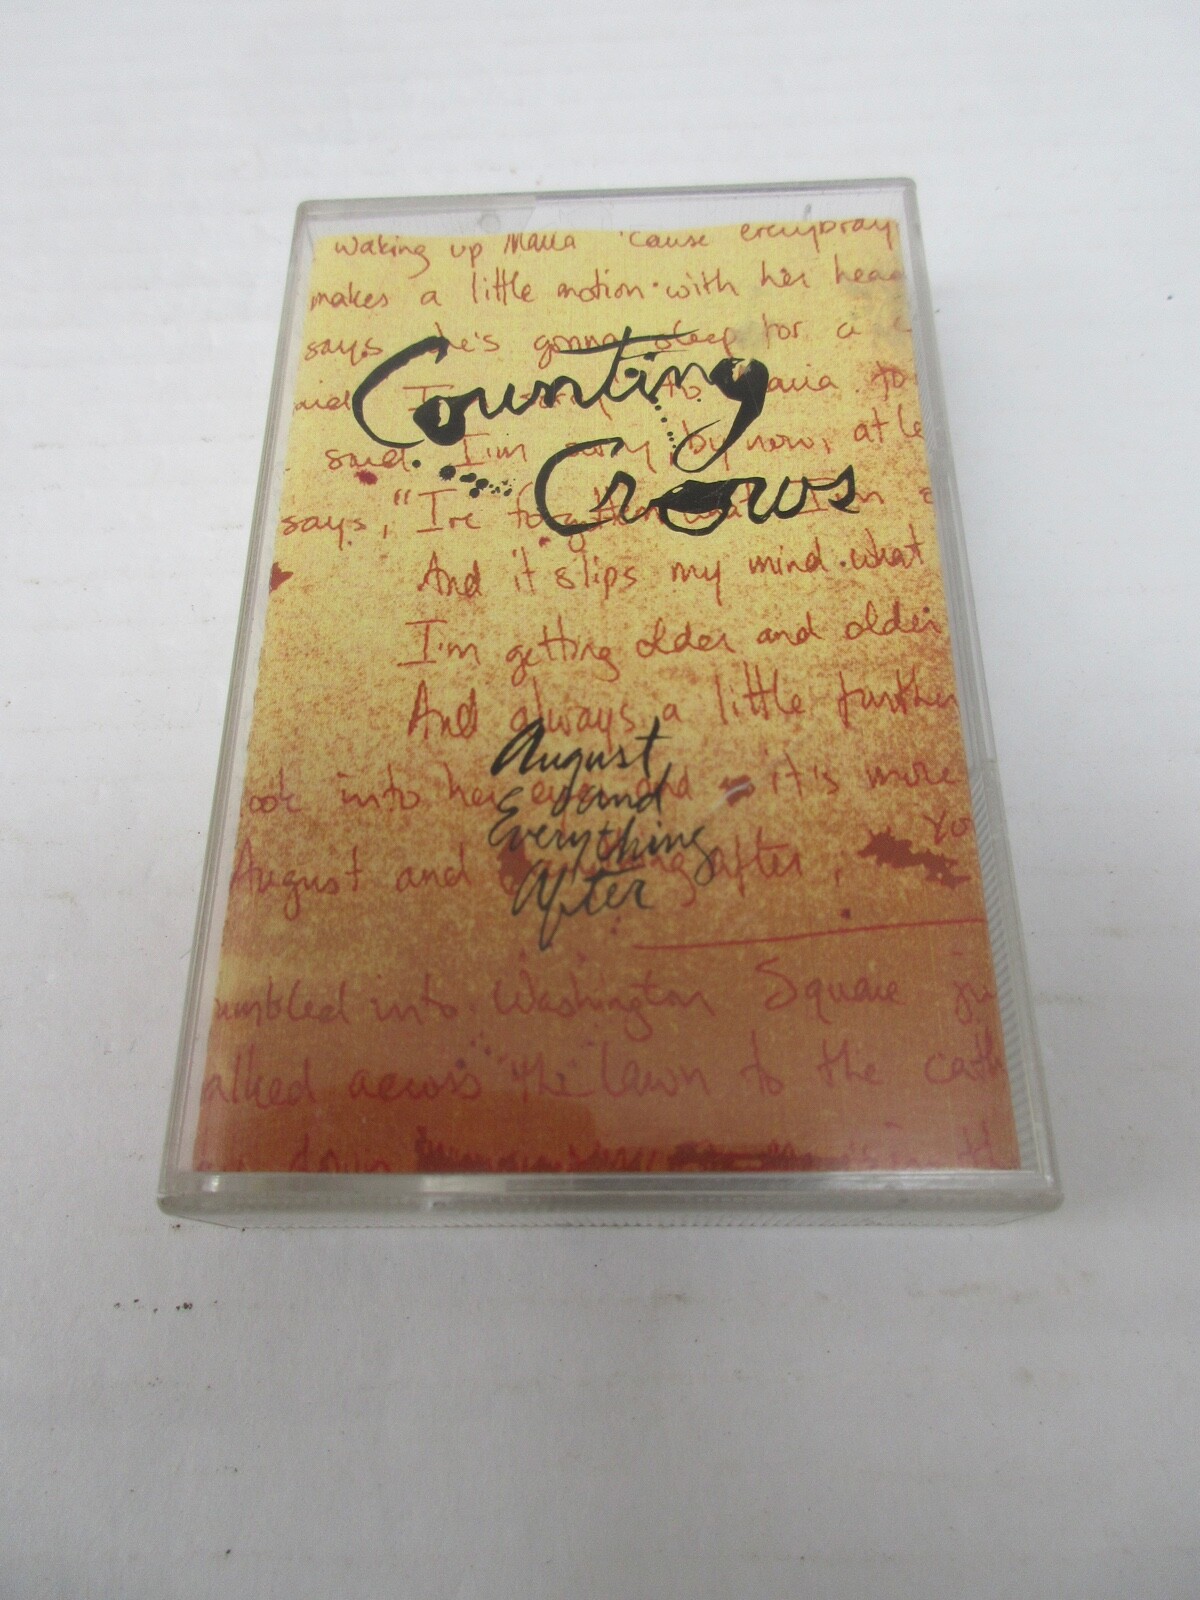 waking up Maria 'cause everybody
makes a little motion with her head
says he's gonna sleep for a
Counting
said I'm sorry to Maria to
said I'm sorry by now, at le
Crows
says, "I've forgotten what I'm
And it slips my mind what
I'm getting older and older
And always a little further
August
look into her eyes and it's more
and
Everything
August and everything after,
After
umbled into Washington Square
alked across the lawn to the cath
down